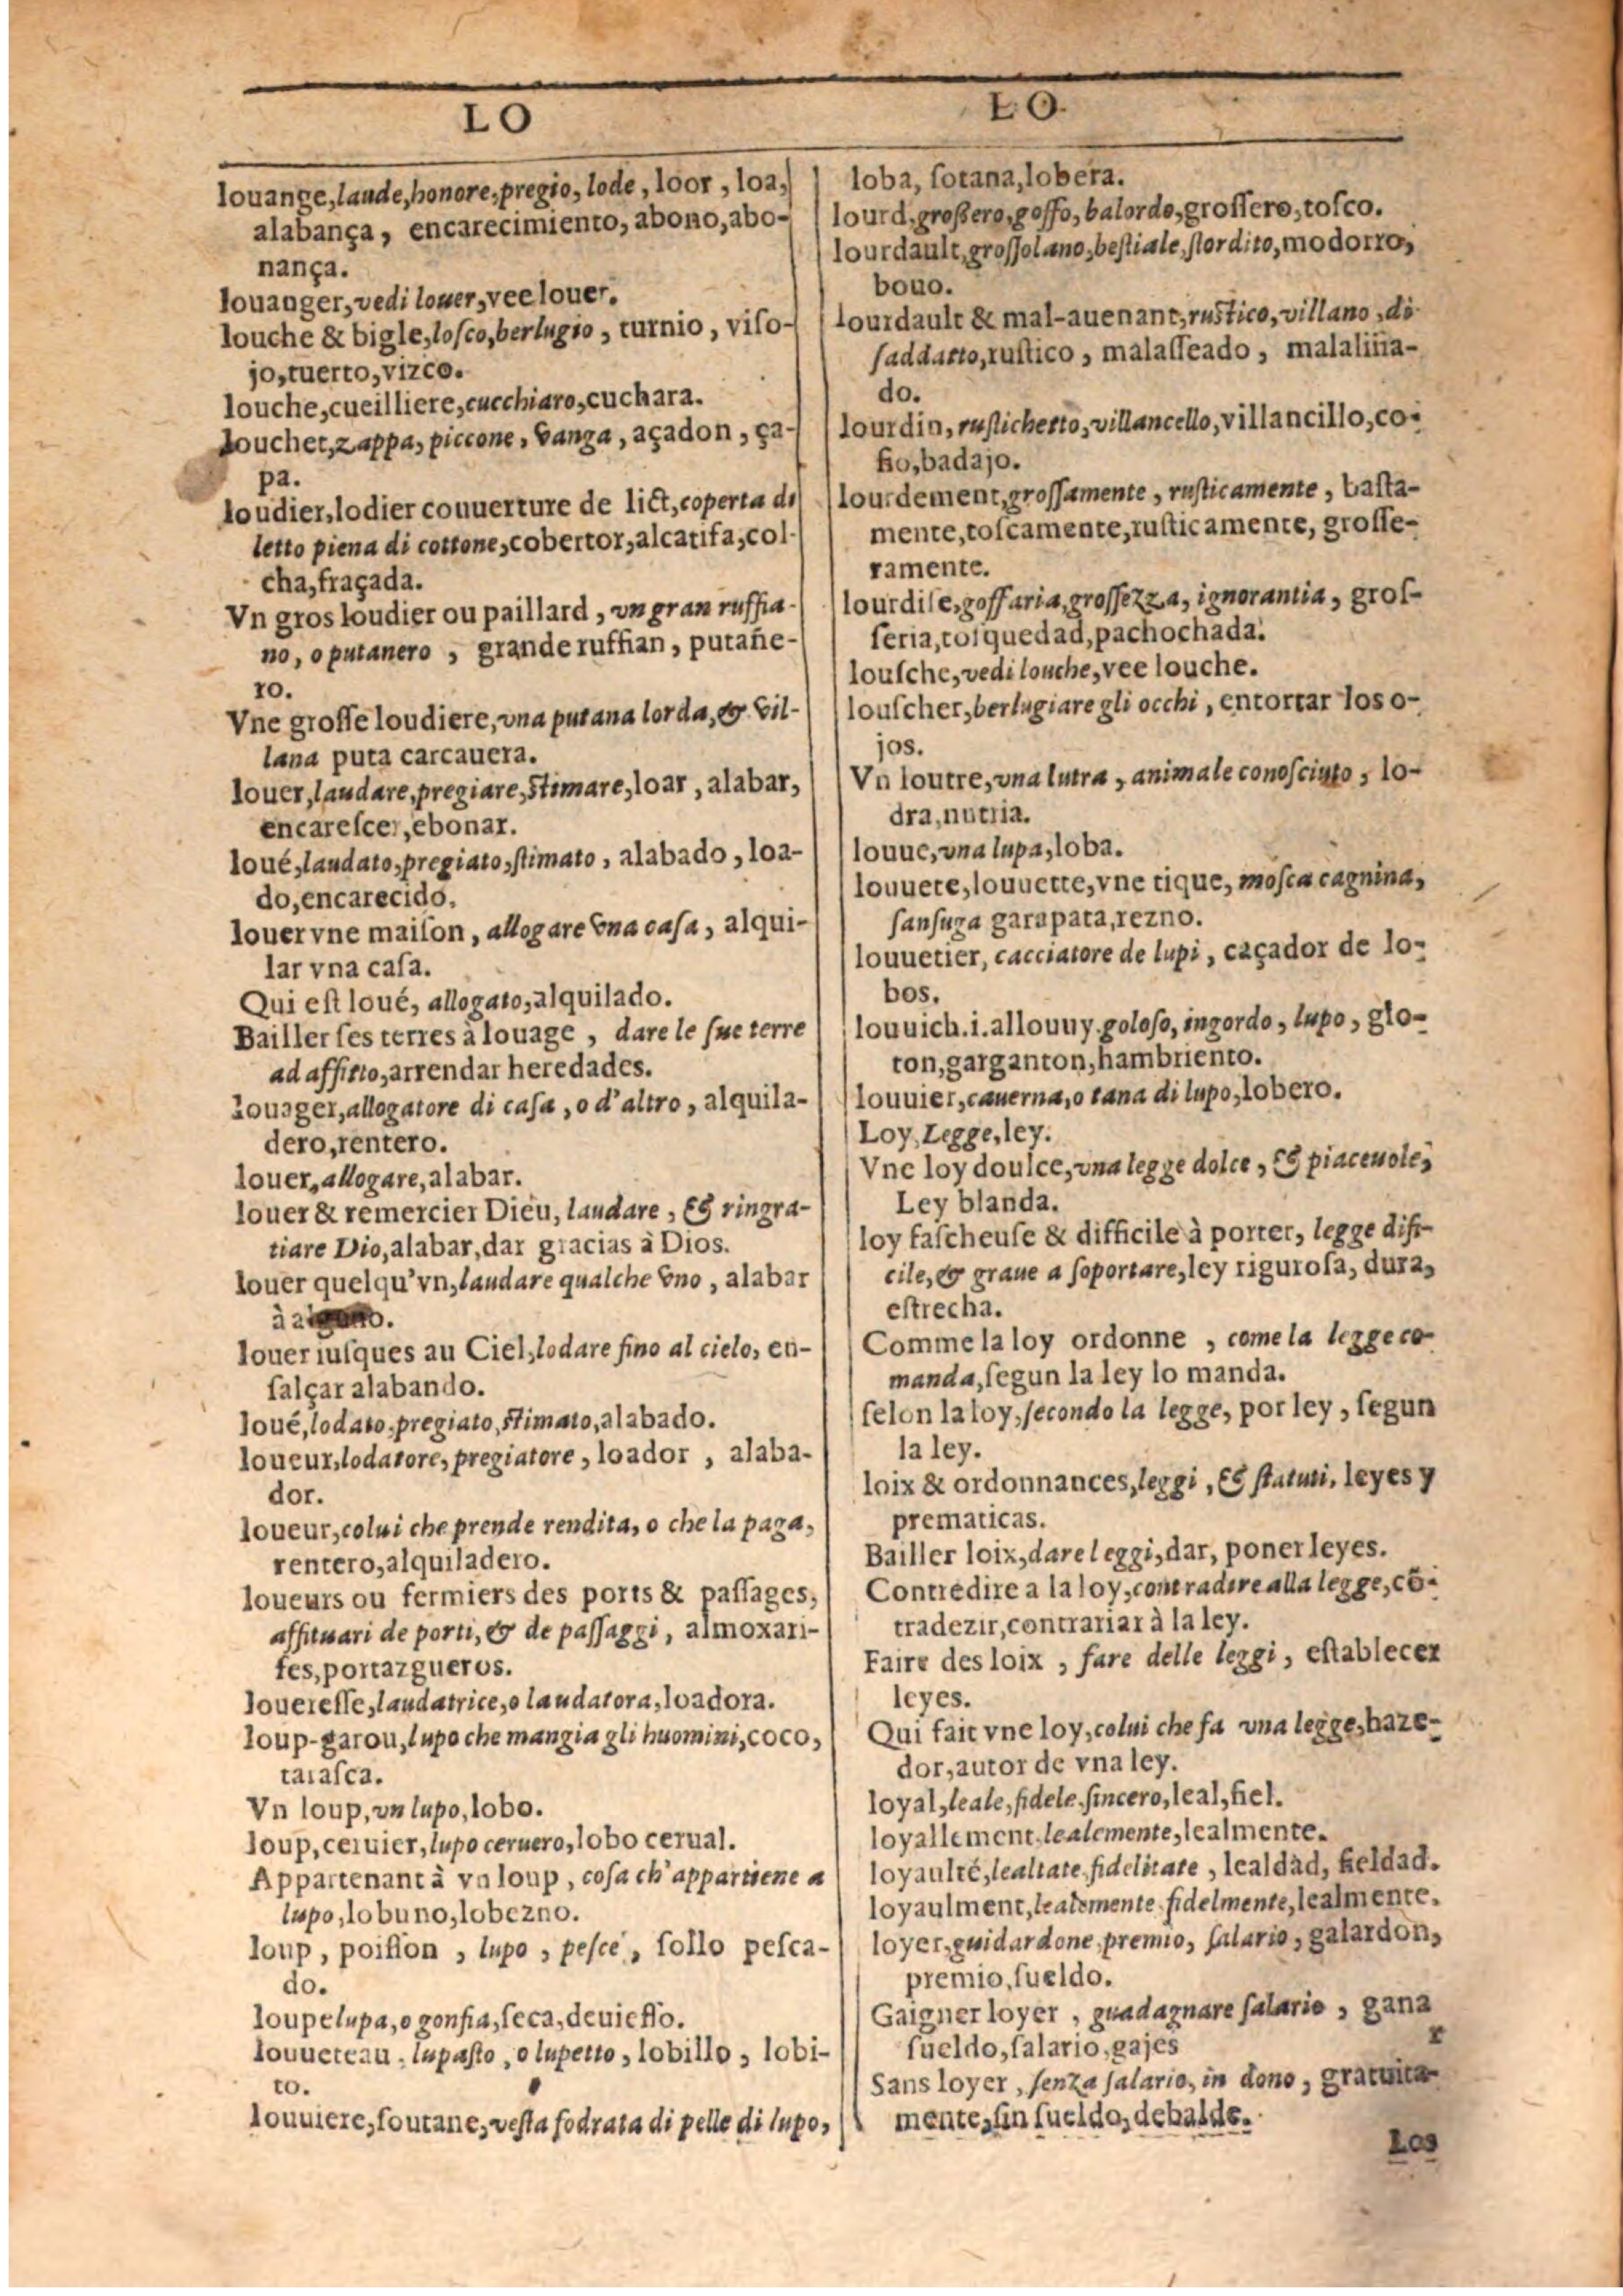 LO
louange, laude, honore, pregio, lode, loor, loa,
alabança, encarecimiento, abono, abo-
nança.
louanger, vedi louer, vee louer.
louche & bigle, losco, berlugio, turnio, viſo-
jo, tuerto, vizco.
louche, cueilliere, cucchiaro, cuchara.
louchet, zappa, piccone, vanga, açadon, ça-
pa.
loudier, lodier couuerture de lict, coperta di
letto piena di cottone, cobertor, alcatifa, col-
cha, fraçada.
Vn gros loudier ou paillard, vn gran ruffia-
no, o putanero, grande ruffian, putañe-
ro.
Vne groſſe loudiere, vna putana lorda, & vil-
lana puta carcauera.
louer, laudare, pregiare, ſtimare, loar, alabar,
encareſcer, ebonar.
loué, laudato, pregiato, ſtimato, alabado, loa-
do, encarecido.
louer vne maiſon, allogare vna caſa, alqui-
lar vna caſa.
Qui eſt loué, allogato, alquilado.
Bailler ſes terres à louage, dare le ſue terre
ad affitto, arrendar heredades.
louager, allogatore di caſa, o d'altro, alquila-
dero, rentero.
louer, allogare, alabar.
louer & remercier Dieu, laudare, & ringra-
tiare Dio, alabar, dar gracias à Dios.
louer quelqu'vn, laudare qualche vno, alabar
à
louer iuſques au Ciel, lodare fino al cielo, en-
ſalçar alabando.
loué, lodato, pregiato, ſtimato, alabado.
loueur, lodatore, pregiatore, loador, alaba-
dor.
loueur, colui che prende rendita, o che la paga,
rentero, alquiladero.
loueurs ou fermiers des ports & paſſages,
affituari de porti, & de paſſaggi, almoxari-
fes, portazgueros.
louereſſe, laudatrice, o laudatora, loadora.
loup-garou, lupo che mangia gli huomini, coco,
taraſca.
Vn loup, vn lupo, lobo.
loup, ceruier, lupo ceruero, lobo cerual.
Appartenant à vn loup, coſa ch'appartiene a
lupo, lobuno, lobezno.
loup, poiſſon, lupo, peſce, ſollo peſca-
do.
loupe lupa, o gonfia, ſeca, deuieſſo.
louueteau, lupaſto, o lupetto, lobillo, lobi-
to.
louuiere, ſoutane, veſta fodrata di pelle di lupo,
LO
loba, ſotana, lobera.
lourd, groſſero, goffo, balordo, groſſero, toſco.
lourdault, groſſolano, beſtiale, ſtordito, modorro,
bouo.
lourdault & mal-auenant, ruſtico, villano, di
ſaddatto, ruſtico, malaſſeado, malaliña-
do.
lourdin, ruſtichetto, villancello, villancillo, co-
ſio, badajo.
lourdement, groſſamente, ruſticamente, baſta-
mente, toſcamente, ruſticamente, groſſe-
ramente.
lourdiſe, goffaria, groſſezza, ignorantia, groſ-
ſeria, toſquedad, pachochada.
louſche, vedi louche, vee louche.
louſcher, berlugiare gli occhi, entortar los o-
jos.
Vn loutre, vna lutra, animale conoſciuto, lo-
dra, nutria.
louue, vna lupa, loba.
louuete, louuette, vne tique, moſca cagnina,
ſanſuga garapata, rezno.
louuetier, cacciatore de lupi, caçador de lo-
bos.
louuich.i.allouuy. goloſo, ingordo, lupo, glo-
ton, garganton, hambriento.
louuier, cauerna, o tana di lupo, lobero.
Loy, Legge, ley.
Vne loy doulce, vna legge dolce, & piaceuole,
Ley blanda.
loy faſcheuſe & difficile à porter, legge difi-
cile, & graue a ſoportare, ley riguroſa, dura,
eſtrecha.
Comme la loy ordonne, come la legge co-
manda, ſegun la ley lo manda.
ſelon la loy, ſecondo la legge, por ley, ſegun
la ley.
loix & ordonnances, leggi, & ſtatuti, leyes y
prematicas.
Bailler loix, dare leggi, dar, poner leyes.
Contredire a la loy, contradire alla legge, cõ-
tradezir, contrariar à la ley.
Faire des loix, fare delle leggi, eſtablecer
leyes.
Qui fait vne loy, colui che fa vna legge, haze-
dor, autor de vna ley.
loyal, leale, fidele, ſincero, leal, fiel.
loyallement, lealemente, lealmente.
loyaulté, lealtate, fidelitate, lealdad, fieldad.
loyaulment, lealemente, fidelmente, lealmente.
loyer, guidardone, premio, ſalario, galardon,
premio, ſueldo.
Gaigner loyer, guadagnare ſalario, gana
r
ſueldo, ſalario, gajes
Sans loyer, ſenza ſalario, in dono, gratuita-
mente, ſin ſueldo, debalde.
Los